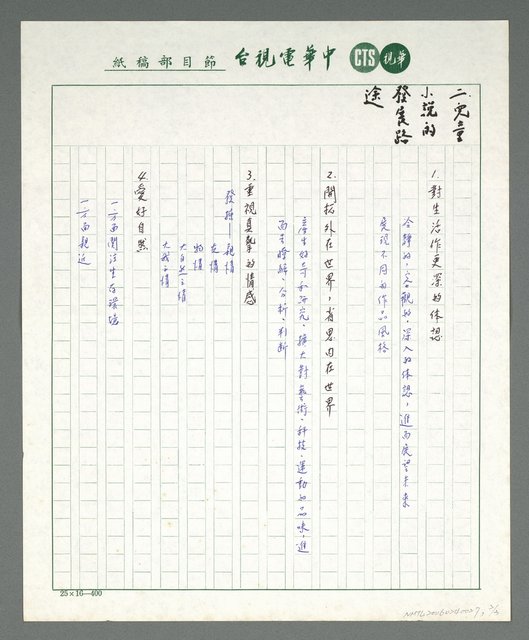 中華電視台 節目部稿紙
CTS
華視
二.兒童
小說的
發展路
途
1.對生活作更深的体認
冷靜的,客觀的,深入的体認,進而展望未來
展現不同的作品風格
2.開拓外在世界,省思內在世界
產生的奇和研究,擴大對藝術、科技、運動的品味,進
而去瞭解、分析、判斷
3.重視真摯的情感
發抒——親情
友情
物情
大自然之情
大我之情
4.愛好自然
一方面關注生存環境
一方面親近
25×16—400